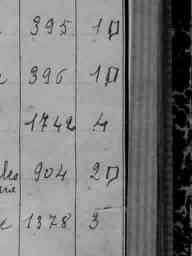 395 10
396 10
1742 4
904 20
1378 3